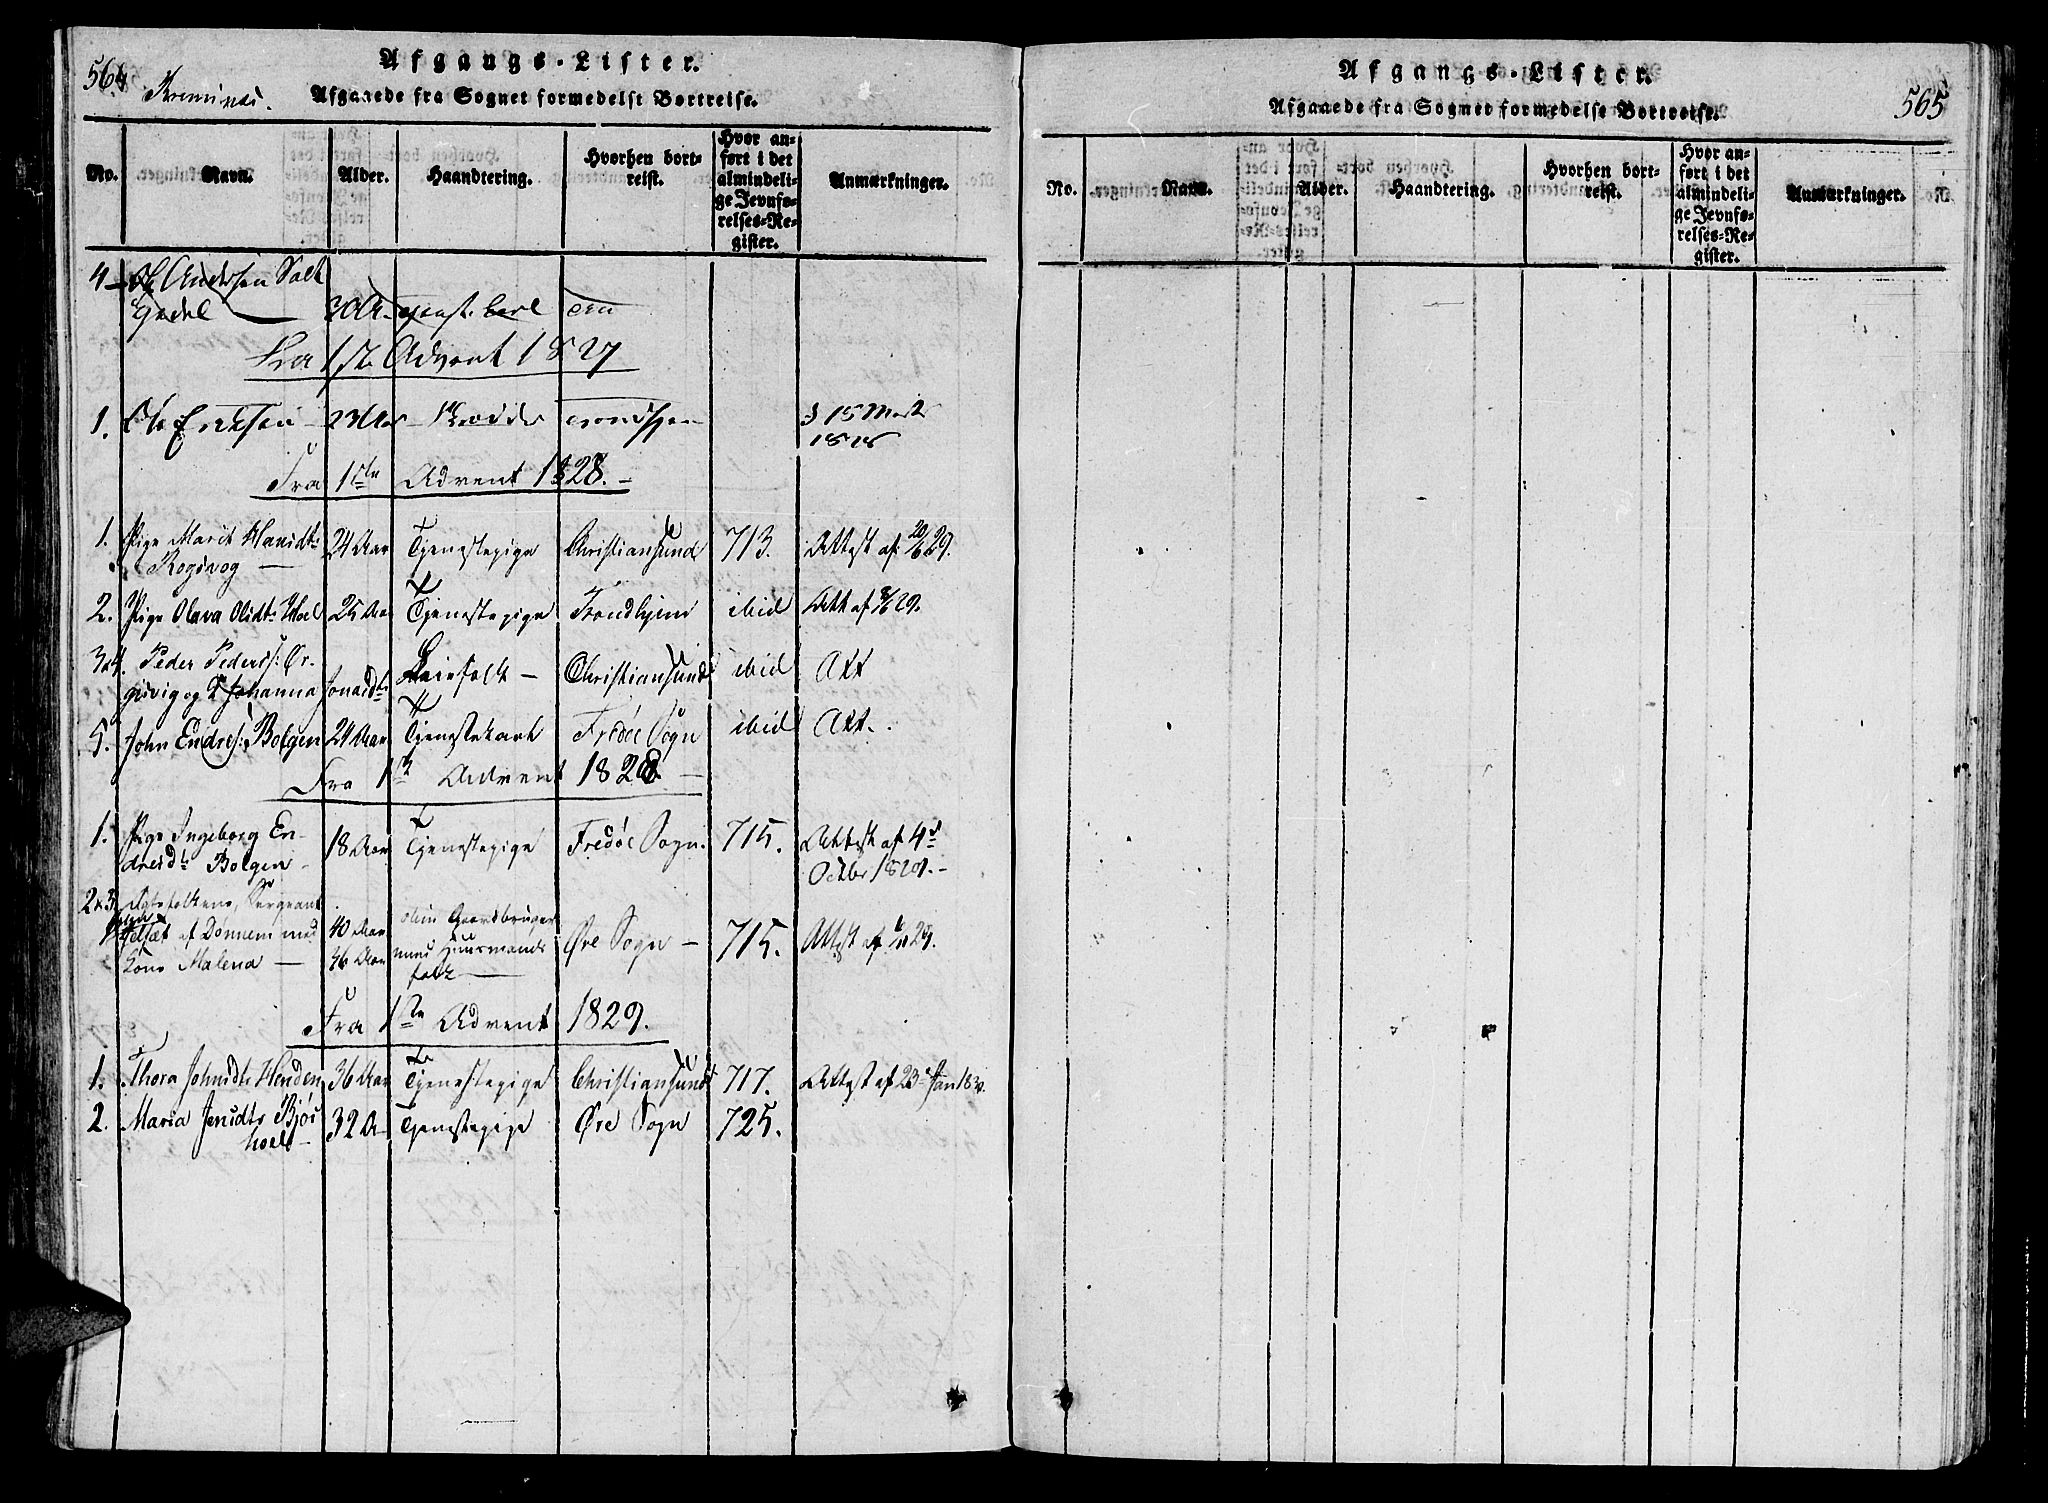 564
Afgangs-Lister.
Afgaaede fra Sognet formedelst Bortreise.
No. Navn. Alder. Haandtering. Hvorhen bort-
reist. Hvor an-
ført i det
almindeli-
ge Jevnfø-
relses-Re-
gister. Anmærkninger.
4 Andersen
30 A.
Fra 1ste Advent 1827
1. Ole Ericksen 23 Aar 15 Marts
Fra 1ste Advent 1828.
1. Pige Marit 24 Aar Tjenestepige Christiansund 713. Attest af 29.
2. Pige Olava Olsdtr 25 Aar Tjenestepige Trondhjem ibid Att af 29.
3 & 4. Peder Peders: Ør-
givig og Johanna Jonasdtr Leiefolk Christiansund ibid Att
5. John Endres: Bolgen 24 Aar Tjenestekarl Fredøe Sogn ibid Att.
Fra 1te Advent 1828
1. Pige Ingeborg En-
dresdtr Bolgen 18 Aar Tjenestepige Fredøe Sogn. 715. Attest af 4de
Octbr 1829.
2 & 3. Sergeant
af Dønnem med 40 Aar Gaardbruger
Kone Malena 36 Aar Huusmands
folk Øre Sogn 715. Attest af 29.
Fra 1te Advent 1829.
1. Thora Johnsdtr Henden 36 Aar Tjenestepige Christiansund 717. Attest af 23de Jan 1830.
2. Maria Jensdtr 32 A Tjenestepige Øre Sogn 725.
565
Afgangs-Lister.
Afgaaede fra Sognet formedelst Bortreise.
No. Navn. Alder. Haandtering. Hvorhen bort-
reist. Hvor an-
ført i det
almindeli-
ge Jevnfø-
relses-Re-
gister. Anmærkninger.